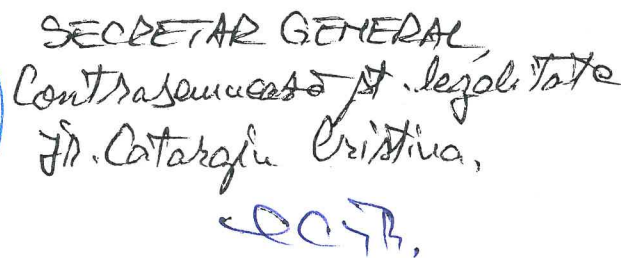 SECRETAR GENERAL,
Contrasemnează pt. legalitate
jr. Catargiu Cristina.